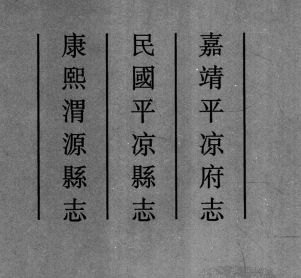 嘉靖平凉府志
民國平凉縣志
康熙渭源縣志